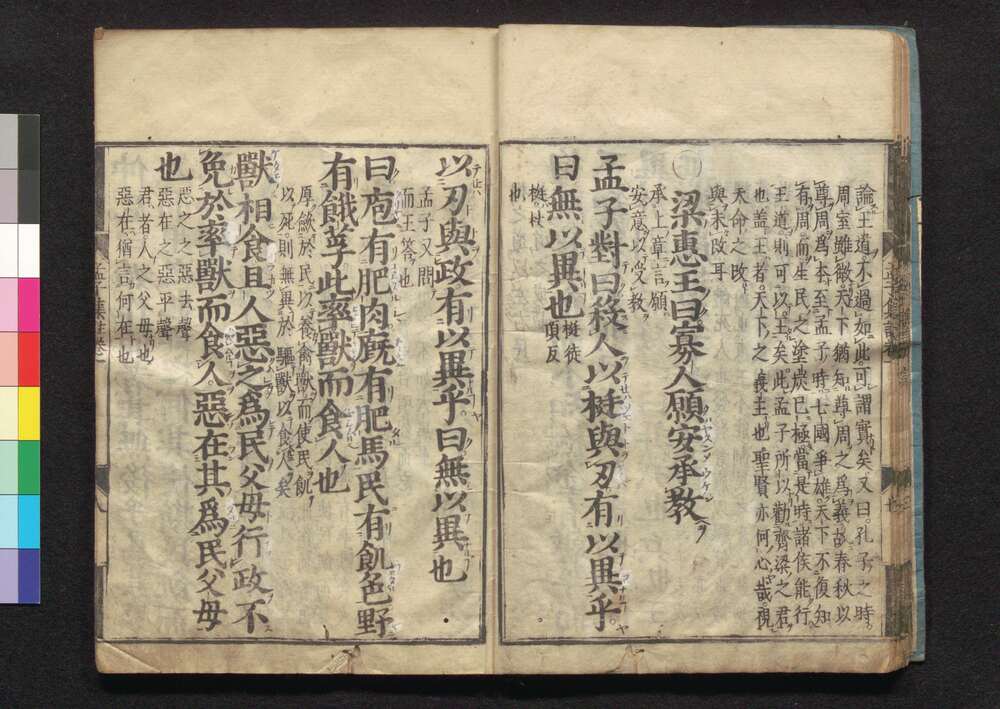 論王道不過如此可謂實矣又曰孔子之時
周室雖微天下猶知尊周之爲義故春秋以
尊周爲本至孟子時七國爭雄天下不復知
有周而生民之塗炭已極當是時諸侯能行
王道則可以王矣此孟子所以勸齊梁之君
也盖王者天下之義主也聖賢亦何心哉視
天命之改
與未改耳
梁惠王曰寡人願安承教
承上章言願
安意以受教
孟子對曰殺人以梃與刃有以異乎
曰無以異也
梃徒
頂反
梃杖
也
以刃與政有以異乎曰無以異也
孟子又問
而王答也
曰庖有肥肉廐有肥馬民有飢色野
有餓莩此率獸而食人也
厚斂於民以養禽獸而使民飢
以死則無異於驅獸以食人矣
獸相食且人惡之爲民父母行政不
免於率獸而食人惡在其爲民父母
也
惡之之惡去聲
惡在之惡平聲
君者人之父母也
惡在猶言何在也